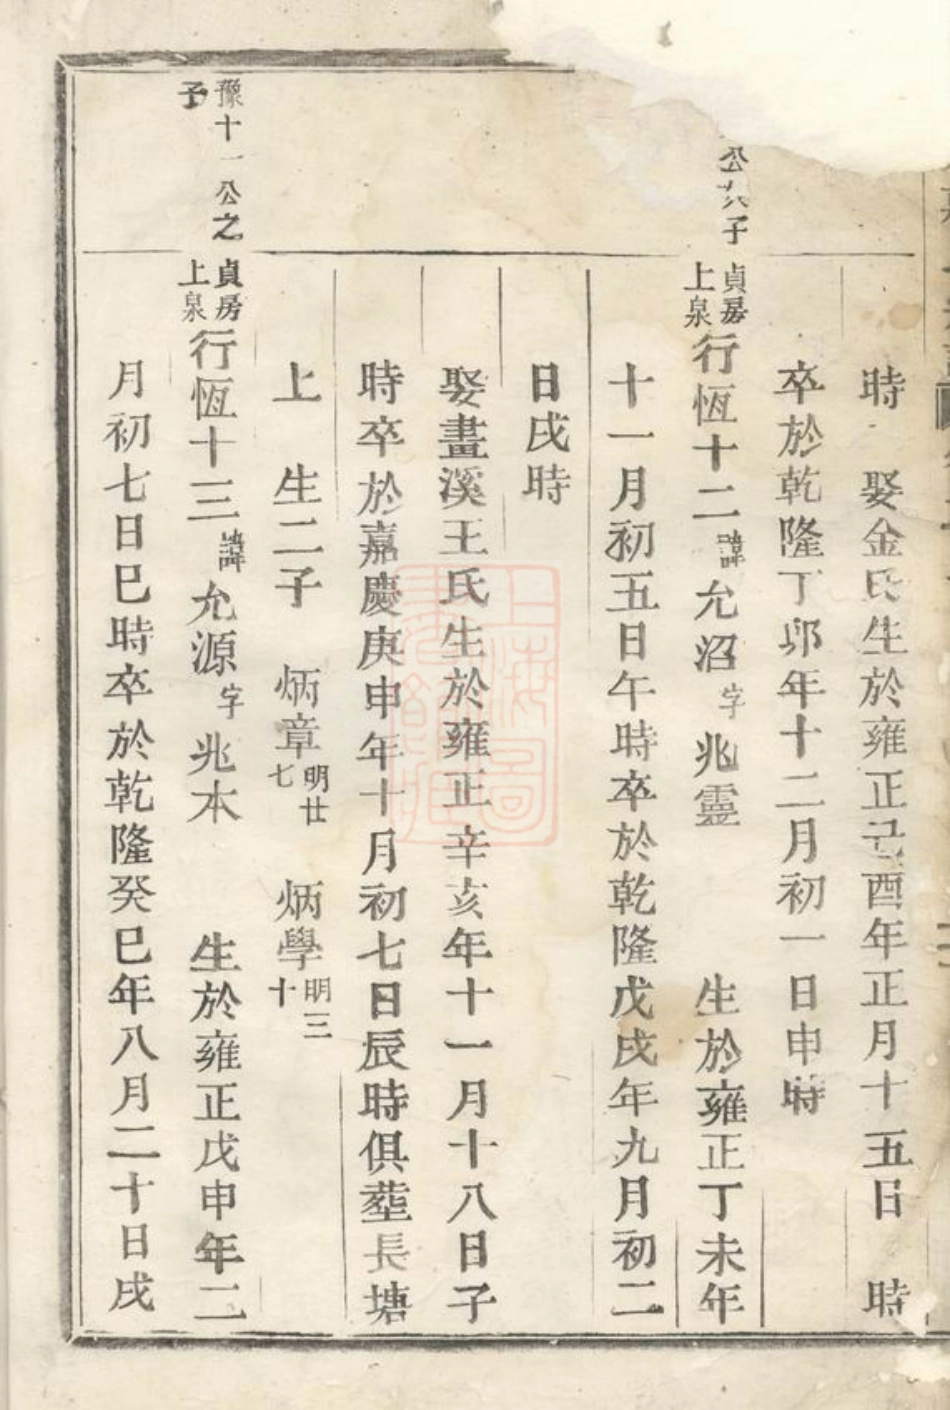 時 娶金氏生於雍正己酉年正月十五日 時
卒於乾隆丁卯年十二月初一日申時
公
子
貞房
上泉
行恆十二諱允沼字兆靈 生於雍正丁未年
十一月初五日午時卒於乾隆戊戌年九月初二
日戌時
娶畫溪王氏生於雍正辛亥年十一月十八日子
時卒於嘉慶庚申年十月初七日辰時俱塟長塘
上 生二子 炳章明廿七 炳學明三十
豫十一公之
子
貞房
上泉
行恆十三諱允源字兆木 生於雍正戊申年二
月初七日巳時卒於乾隆癸巳年八月二十日戌
上海圖書館藏